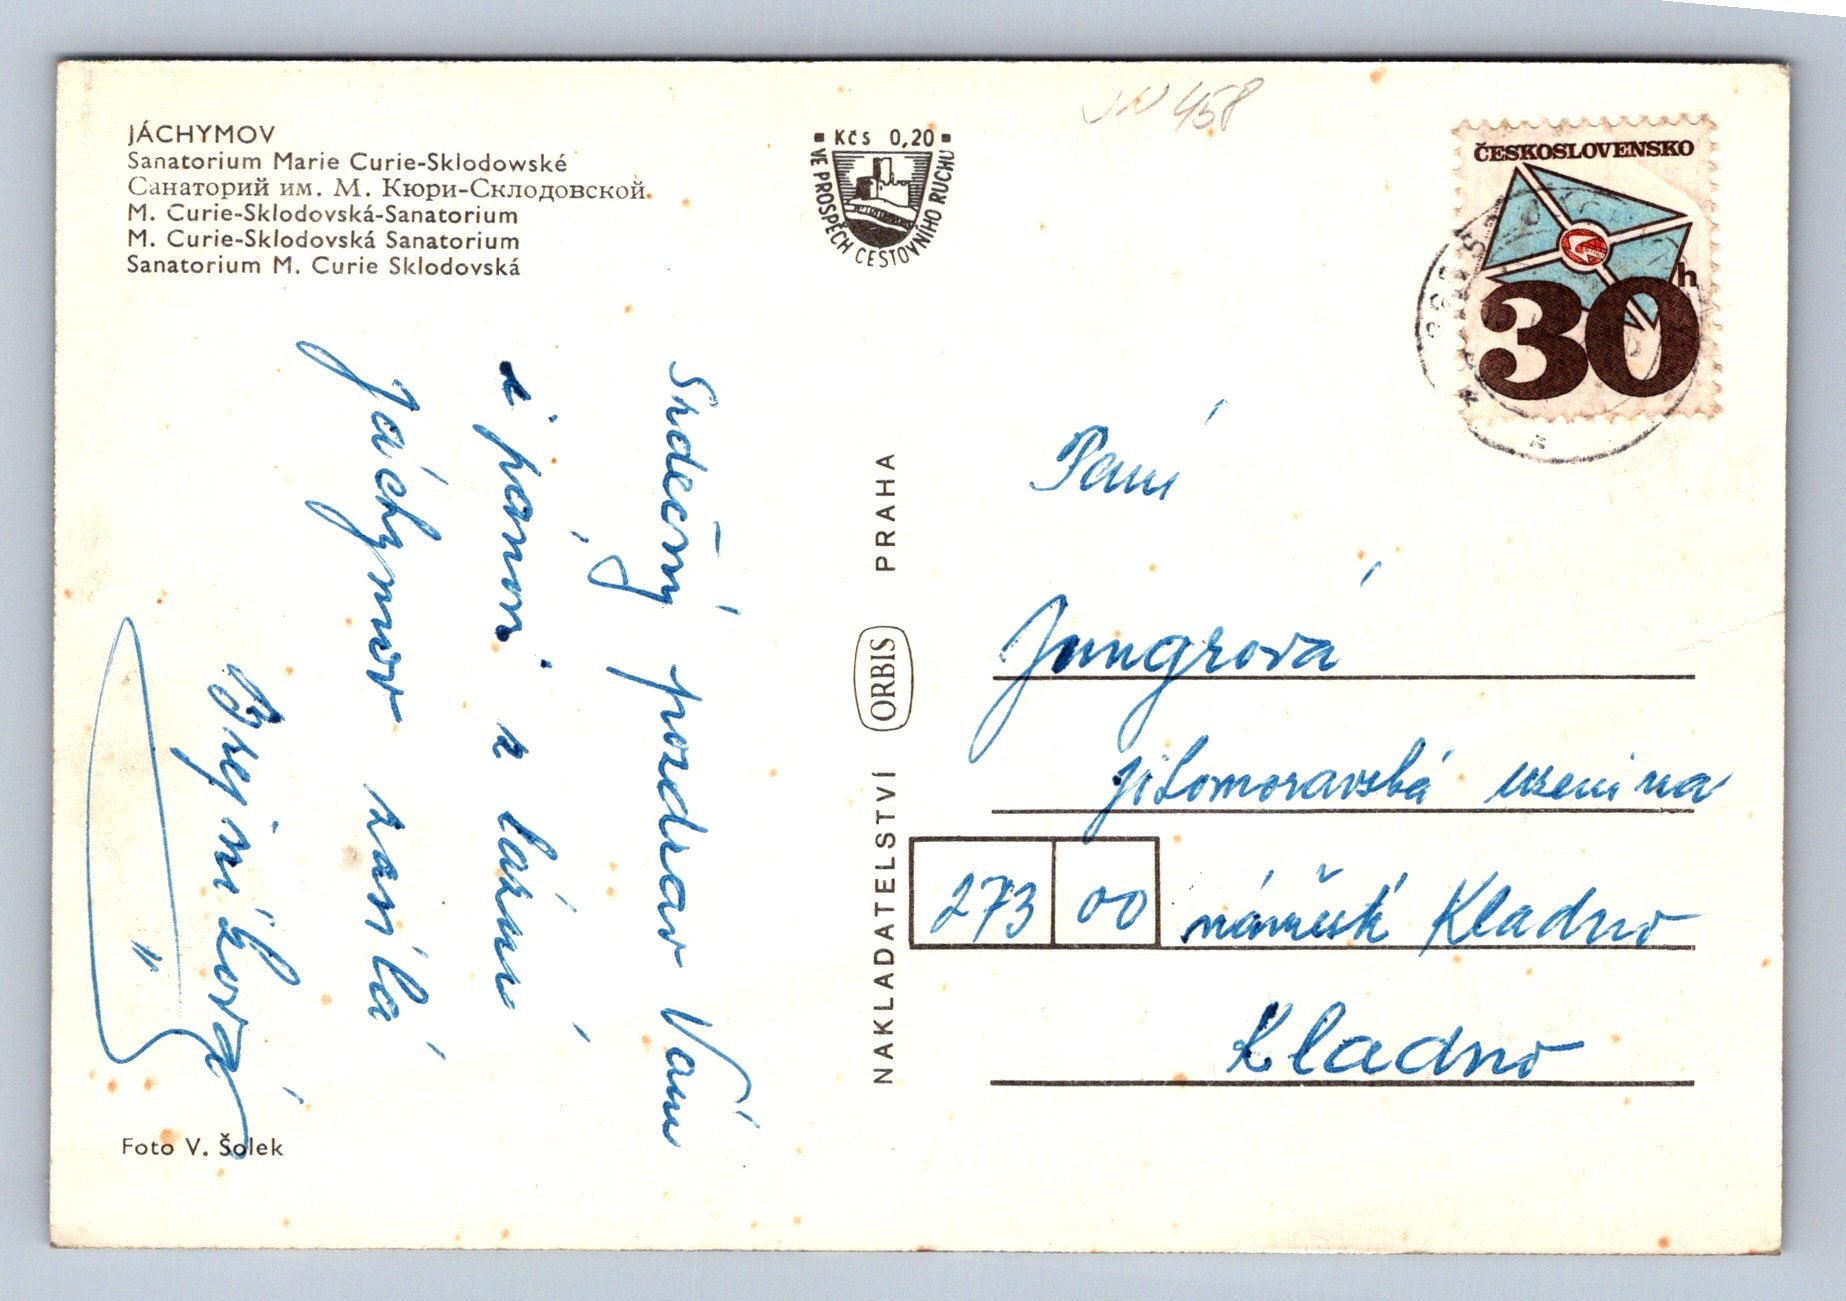 JÁCHYMOV
Sanatorium Marie Curie-Sklodowské
Санаторий им. М. Кюри-Склодовской.
M. Curie-Sklodovská-Sanatorium
M. Curie-Sklodovská Sanatorium
Sanatorium M. Curie Sklodovská
Kčs 0,20
VE PROSPĚCH CESTOVNÍHO RUCHU
458
ČESKOSLOVENSKO
30 h
Srdečný pozdrav Vám
z lázní
Jáchymov zasílá
Foto V. Šolek
NAKLADATELSTVÍ ORBIS PRAHA
Paní
Jungrová
uzenina
273 00 Kladno
Kladno